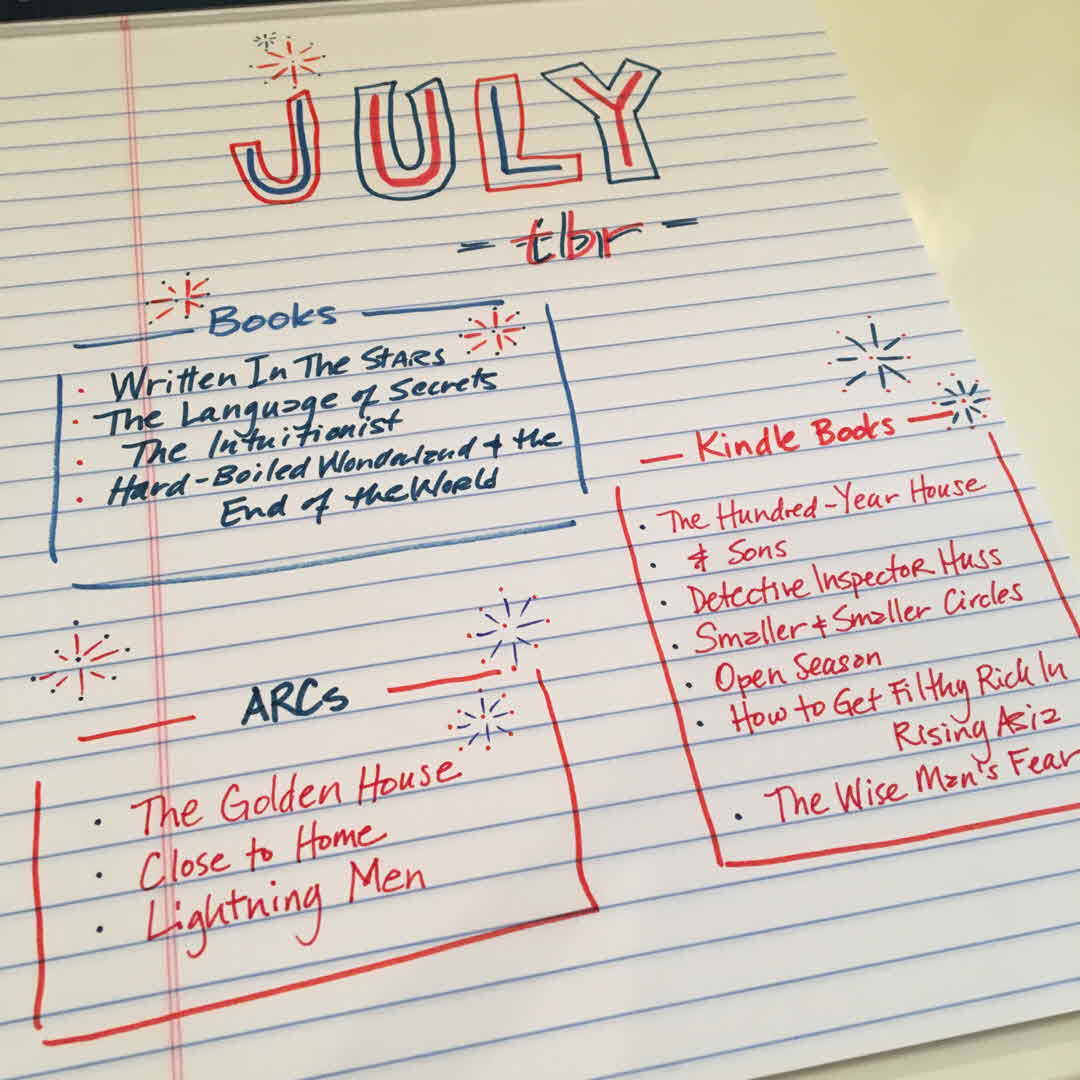 JULY
- tbr -
Books
· Written In The Stars
· The Language of Secrets
· The Intuitionist
· Hard-Boiled Wonderland & the
End of the World
Kindle Books
· The Hundred-Year House
· & Sons
· Detective Inspector Huss
· Smaller & Smaller Circles
· Open Season
· How to Get Filthy Rich In
Rising Asia
· The Wise Man's Fear
ARCs
· The Golden House
· Close to Home
· Lightning Men